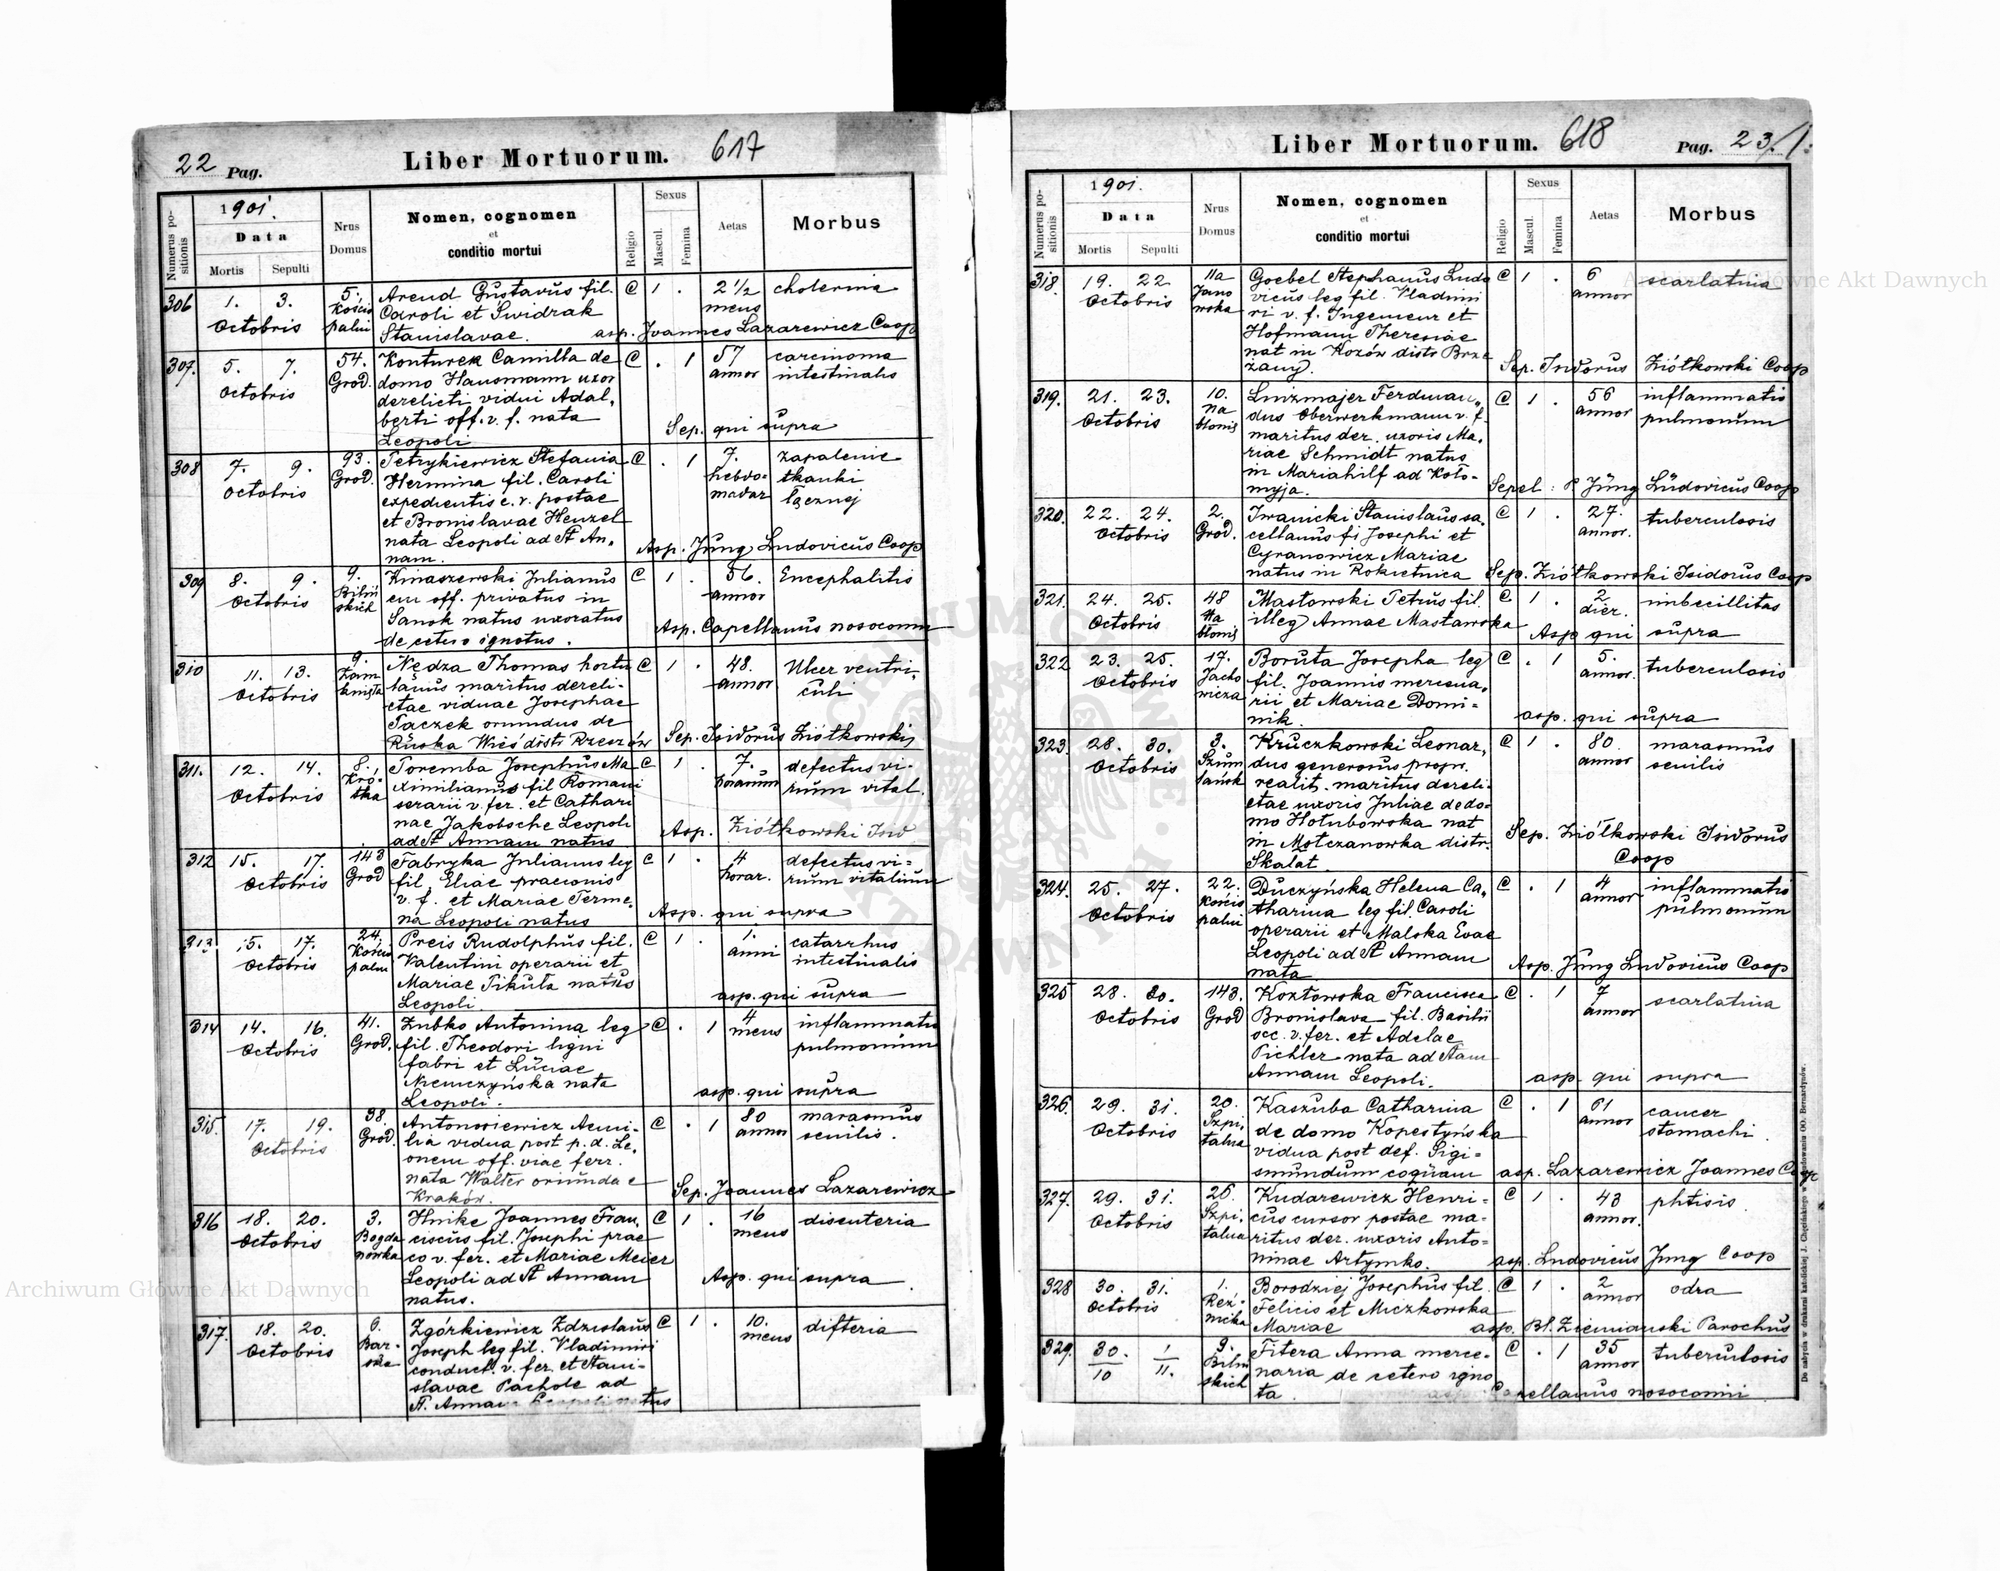 22 Pag. Liber Mortuorum. 617
Numerus positionis
1901.
Data
Mortis Sepulti
Nrus Domus
Nomen, cognomen
et
conditio mortui
Religio
Sexus
Mascul. Femina
Aetas
Morbus
306 1. 3. 5. Arend Gustavus fil. C 1 . 2 1/2 cholerina
Octobris Kościo Caroli et Świdrak mens
palni Stanislavae. asp. Joannes Lazarewicz Coop
307. 5. 7. 54. Konturek Camilla de C . 1 57 carcinoma
Octobris Grod. domo Hausmann uxor annor intestinalis
derelicti vidui Adal,
berti off. v. f. nata Sep. qui supra
Leopoli
308 7. 9. 93. Petrykiewicz Stefania C . 1 7. zapalenie
Octobris Grod. Hermina fil. Caroli hebdo- tkanki
expedientis c. r. postae madar łącznej
et Bronislavae Henzel
nata Leopoli ad St An, Asp. Jüng Ludovicus Coop
nam.
309 8. 9. 9. Kniaszewski Julianus C 1 . 56. Encephalitis
Octobris Biliń em off. privatus in annor
skich Sanok natus uxoratus Asp. Capellanus nosocomii
de cetero ignotus.
310 11. 13. 9. Nędza Thomas hortu C 1 . 48. Ulcer ventri,
Octobris Zam lanus maritus dereli- annor culi
knięta ctae viduae Josephae
Paczek oriundus de
Ruska Wieś distr Rzeszów Sep. Isidorus Ziółkowski
311. 12. 14. 8. Poremba Josephus Ma C 1 . 7. defectus vi-
Octobris Kró- ximilianus fil Romani horarum rium vital.
tka serarii v. fer. et Cathari
nae Jakobsche Leopoli Asp. Ziółkowski Isid
ad St Annam natus
312 15. 17. 143 Fabryka Julianus leg C 1 . 4 defectus vi=
Octobris Grod fil. Eliae praeconis horar. rium vitalium
v. f. et Mariae Terme,
na Leopoli natus Asp. qui supra
313 15. 17. 24. Preis Rudolphus fil. C 1 . 1. catarrhus
Octobris Kościo Valentini operarii et anni intestinalis
palni Mariae Pikuła natus
Leopoli asp. qui supra
314 14. 16. 41. Zubko Antonina leg C . 1 4 inflammatio
Octobris Grod. fil. Theodori ligni mens pulmonum
fabri et Luciae
Niemczyńska nata asp. qui supra
Leopoli.
315. 17. 19. 38. Antonowiewicz Aemi- C . 1 80 marasmus
Octobris Grod. lia vidua post p. d. Le, annor senilis.
onem off. viae ferr.
nata Walter oriunda e Sep. Joannes Lazarewicz
Kraków.
316 18. 20. 3. Hnike Joannes Fran, C 1 . 16 disenteria
Octobris Bogda ciscus fil. Josephi prae mens
nówka co v. fer. et Mariae Meier
Leopoli ad St Annam Asp. qui supra
natus.
317. 18. 20. 6. Zgórkiewicz Zdzislaus C 1 . 10. difteria
Octobris Bar- Joseph leg fil. Vladimiri mens
ska conduct. v. fer. et Stani-
slavae Pachole ad
St. Annam Leopoli natus
Liber Mortuorum. 618 Pag. 23./1.
Numerus positionis
1901.
Data
Mortis Sepulti
Nrus Domus
Nomen, cognomen
et
conditio mortui
Religio
Sexus
Mascul. Femina
Aetas
Morbus
318. 19. 22 11a Goebel Stephanus Ludo C 1 . 6 scarlatina
Octobris Jano vicus leg fil. Vladimi annor
wska ri v. f. Ingenieur et
Hofmann Theresiae
nat in Kozów distr Brze
żany. Sep. Isidorus Ziółkowski Coop
319. 21. 23. 10. Linzmajer Ferdinan, C 1 . 56 inflammatio
Octobris na dus Oberwerkmann v. f. annor pulmonum
błonie maritus der. uxoris Ma,
riae Schmidt natus
in Mariahilf ad Koło-
myja. Sepel: P Jüng Lüdovicus Coop
320. 22. 24. 2. Iwanicki Stanislaus sa, C 1 . 27. tuberculosis
Octobris Grod. cellanus fi Josephi et annor.
Cyranowicz Mariae
natus in Rokietnica Sep. Ziółkowski Isidorus Coop
321. 24. 25. 48 Masłowski Petrus fil. C 1 . 2 imbecillitas
Octobris Na illeg Annae Masłowska dier.
błonie Asp qui supra
322 23. 25. 17. Boruta Josepha leg C . 1 5. tuberculosis
Octobris Jacho fil. Joannis mercena, annor.
wicza rii et Mariae Domi-
nik. asp. qui supra
323. 28. 30. 3. Kruczkowski Leonar, C 1 . 80. marasmus
Octobris Szum dus generosus propr. annor senilis
lańsk realit. maritus dereli-
ctae uxoris Juliae de do-
mo Hołubowska nat Sep. Ziółkowski Isidorus
in Mołczanowka distr. Coop
Skałat
324. 25. 27. 22. Duczyńska Helena Ca, C . 1 4 inflammatio
Octobris Kościo tharina leg fil. Caroli annor pulmonum
palni operarii et Malska Evae
Leopoli ad St Annam Asp. Jüng Ludovicus Coop
nata
325 28. 30. 143. Kozłowska Francisca C . 1 7 scarlatina
Octobris Grod Bronislava fil. Basilii annor
scc. v. fer. et Adelae
Pichler nata ad Stam
Annam Leopoli. asp. qui supra
326. 29. 31. 20. Kaszuba Catharina C . 1 61 cancer
Octobris Szpi, de domo Kopestyńska annor stomachi.
talna vidua post def. Sigi-
smundum coquam asp. Lazarewicz Joannes Coop
327. 29. 31. 26. Kudarewicz Henri- C 1 . 43 phtisis
Octobris Szpi, cus cursor postae ma- annor.
talna ritus der. uxoris Anto-
ninae Artymko. asp. Ludovicus Jüng Coop
328 30. 31. 1. Borodziej Josephus fil. C 1 . 2 odra
Octobris Rzeź- Felicis et Miczkowska annor
nicka Mariae asp. Bl. Ziemiański Parochus
329. 30. 1 9. Fitera Anna merce- C . 1 35 tuberculosis
10 11. Biliń naria de cetero igno annor
skich ta. asp. Capellanus nosocomii
Do nabycia w drukarni katolickiej J. Chęcińskiego w zabudowaniu OO. Bernardynów.
Archiwum Główne Akt Dawnych
Archiwum Główne Akt Dawnych
ARCHIWUM GŁÓWNE AKT DAWNYCH